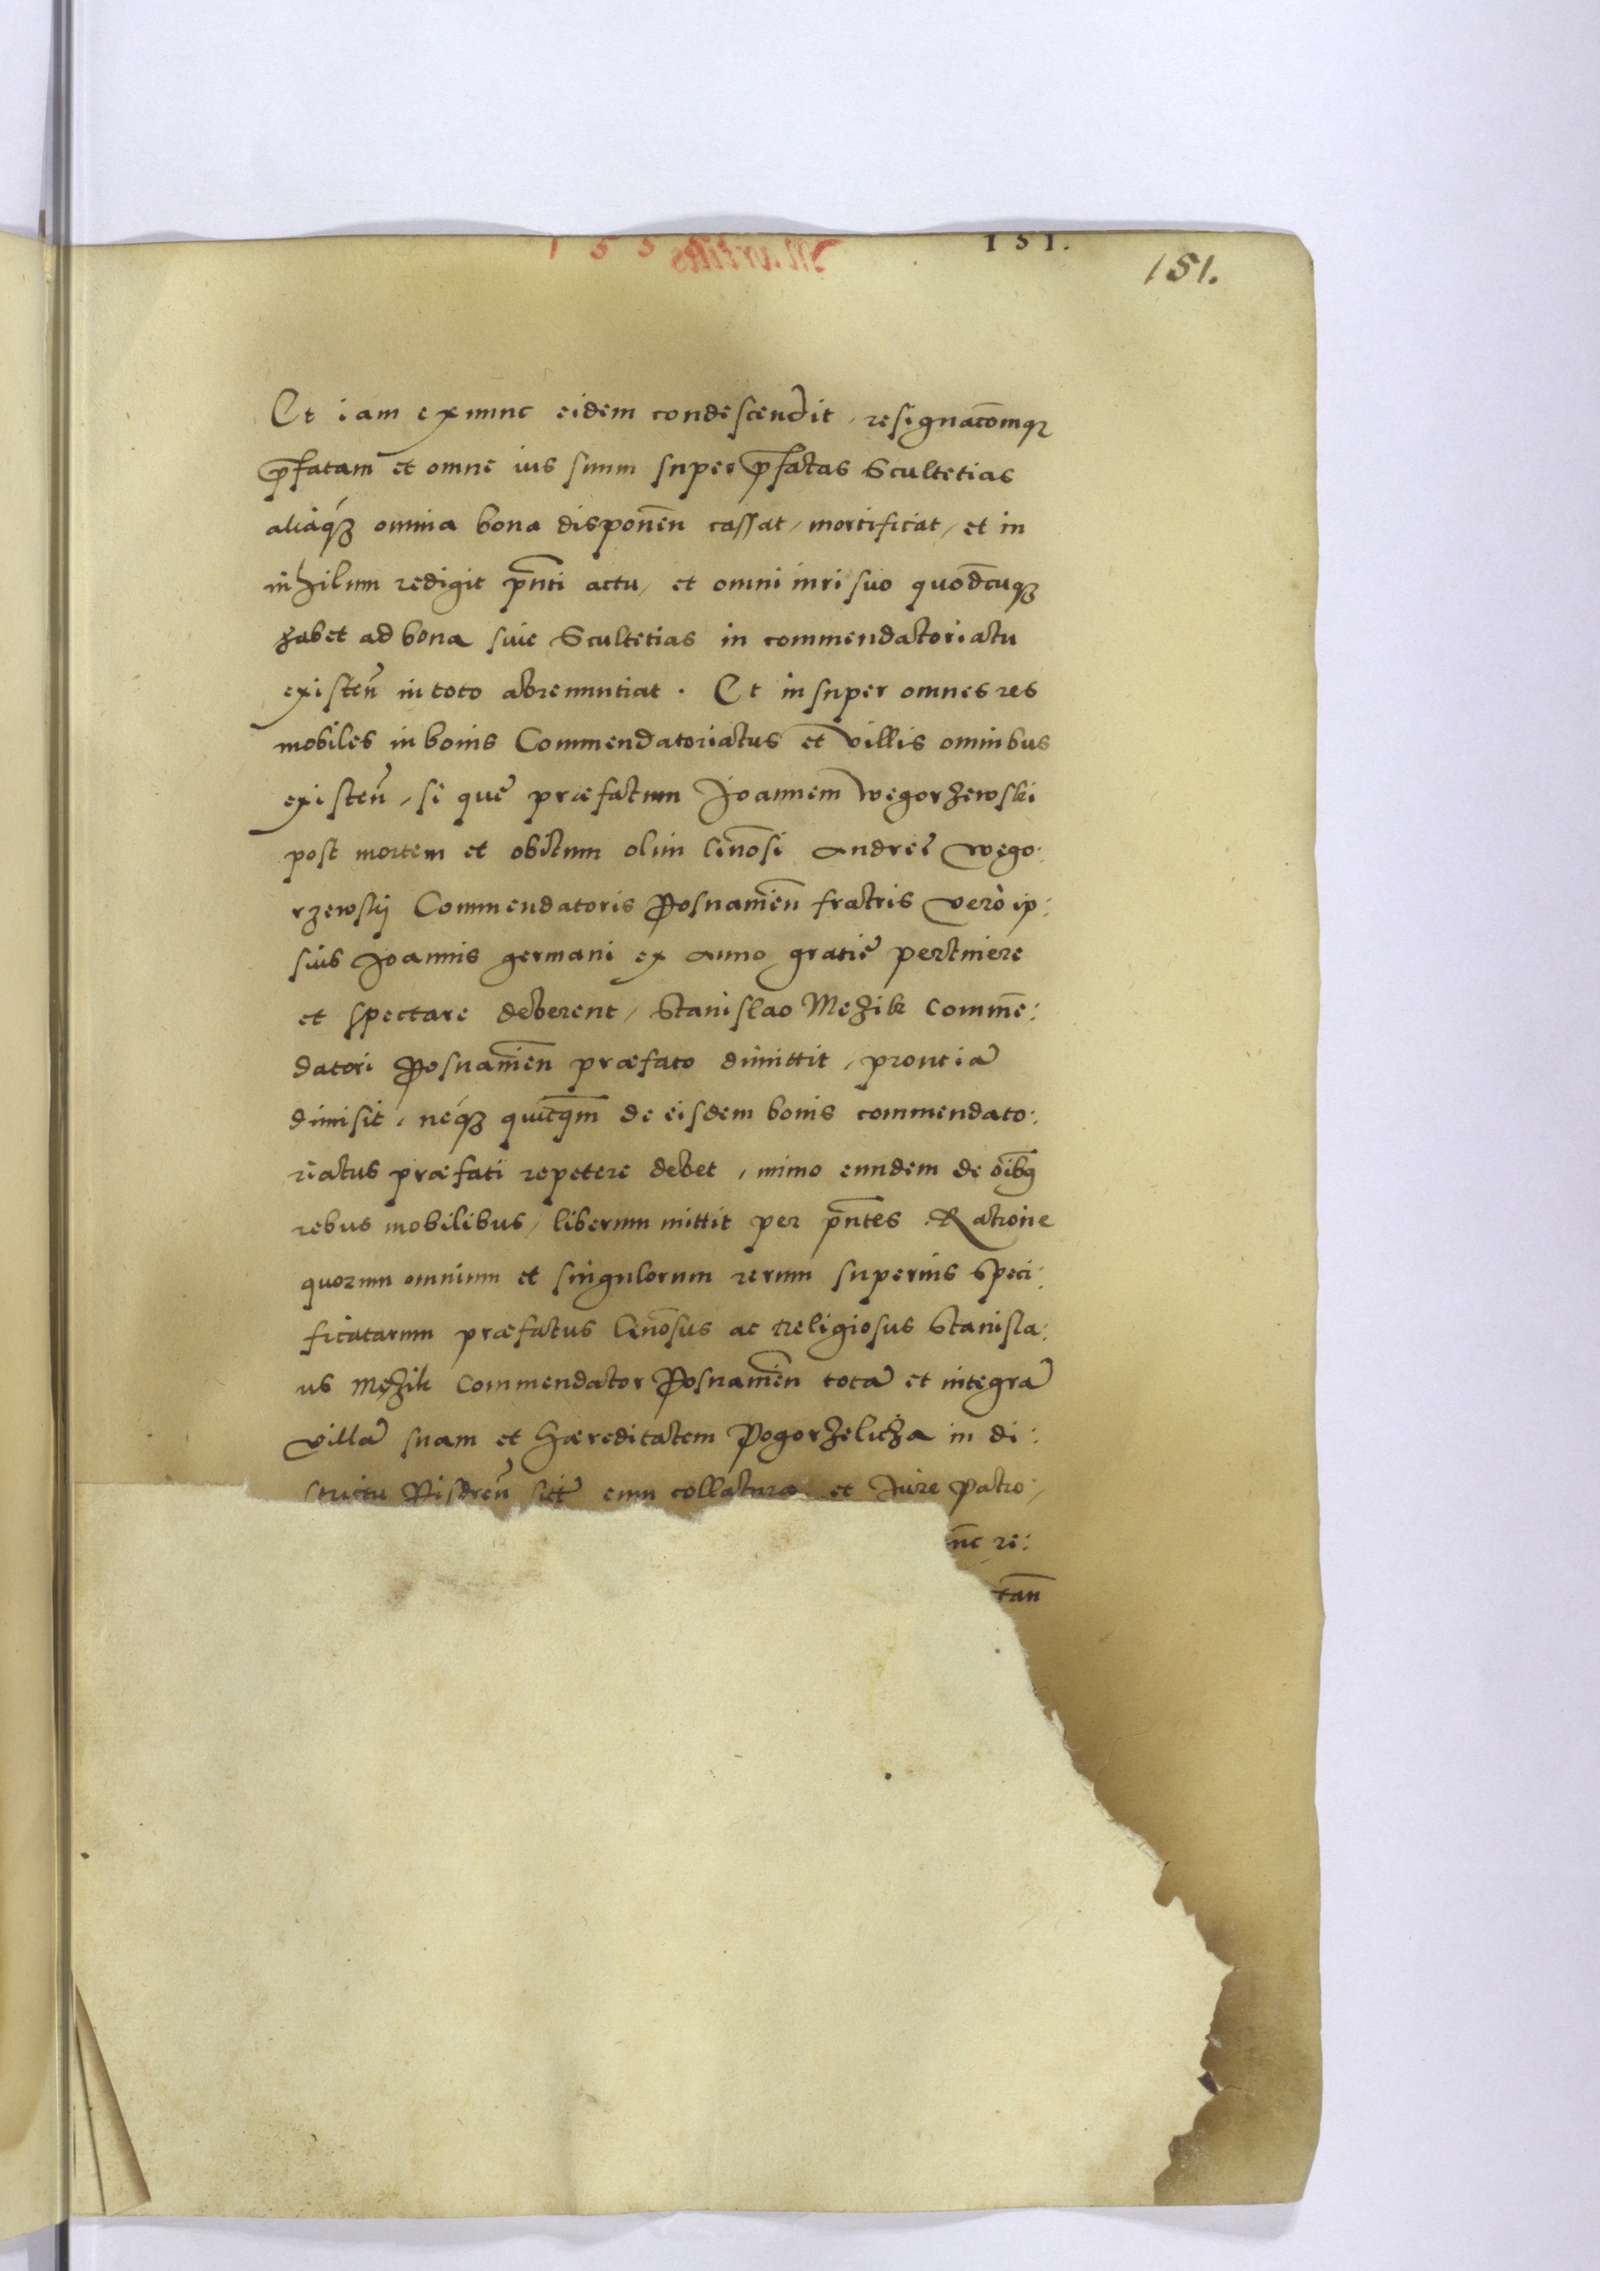 151.
151.
Et iam exnunc eidem condescendit, resignacōmq̃
p̄fatam et omne ius suum super p̄fatas Scultetias
aliaq́ꝫ omnia bona disponeñ cassat, mortificat, et in
inhilum redigit p̄nti actu, et omni iuri suo quodcūqꝫ
habet ad bona siue Scultetias in commendatoriatu
existeñ in toto abrenuntiat. Et insuper omnes res
mobiles in bonis Commendatoriatus et villis omnibus
existeñ, si que præfatum Joannem Wegorzewski
post mortem et obitum olim Gñosi Andree Wego:
rzewskij Commendatoris Posnanieñ fratris verò ip:
sius Joannis germani ex anno gratie pertinere
et spectare deberent, Stanislao Mezik Commē:
datori Posnanieñ præfato dimittit, prout iā
dimisit, neq́ꝫ quicq̄m de eisdem bonis commendato:
riatus præfati repetere debet, immo eundem de oībꝫ
rebus mobilibus, liberum mittit per p̄ntes. Ratione
quorum omnium et singulorum rerum superius speci:
ficatarum præfatus Gñosus ac Religiosus Stanisla:
us Mezik Commendator Posnanieñ totā et integrā
villā suam et hæreditatem Pogorzelicza in di:
strictu Pisdreñ sitā cum collatura et Jure patro,
nc re:
tañ